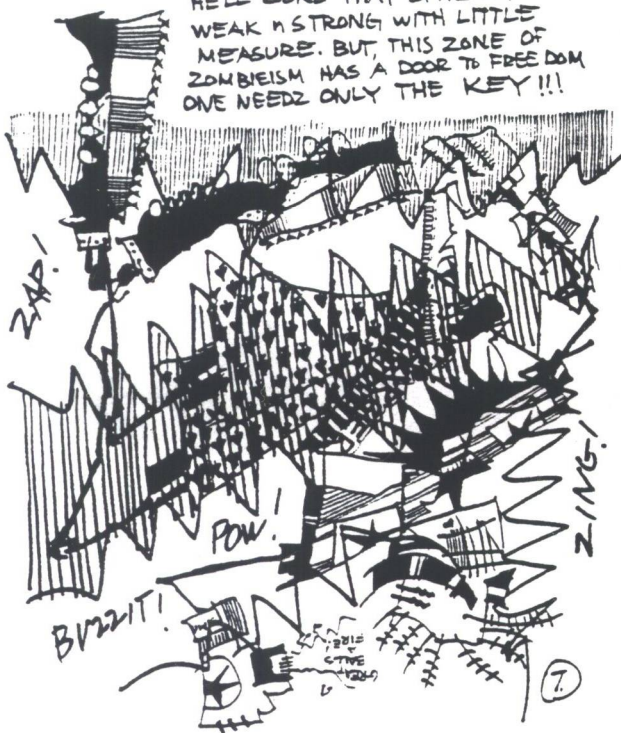 HELL ZONE THAT
WEAK n STRONG WITH LITTLE
MEASURE. BUT, THIS ZONE OF
ZOMBIEISM HAS A DOOR TO FREEDOM
ONE NEEDZ ONLY THE KEY!!!
ZAP!
ZING!
POW!
BUZZIT!
7.